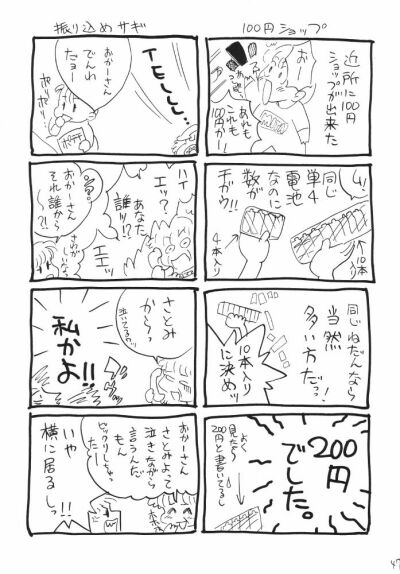 100円ショップ
近所に100円
ショップが出来た
おー
あれも
これも
100円かー!
4!
同じ
単4
電池
なのに
数が
チガウ!!
↑10本
入り
4本入り
同じねだんなら
当然
多い方だっ!
10本入り
に決めッ
200円
でした。
よく
見たら
200円と書いてるし
振り込めサギ
TELLL...
おかーさん
でんわ
だよー
ポリポリ
ハイ
エッ?
あなた
誰ッ!?
エエッ
おかーさん
それ誰から
!?
さとみ
からっ
泣いてるッ!!
私かよ!!
おかーさん
さとみよって
泣きながら
言うんだ
もん
ビックリしちゃっ
たー
いや
横に居るし
っ!!
47